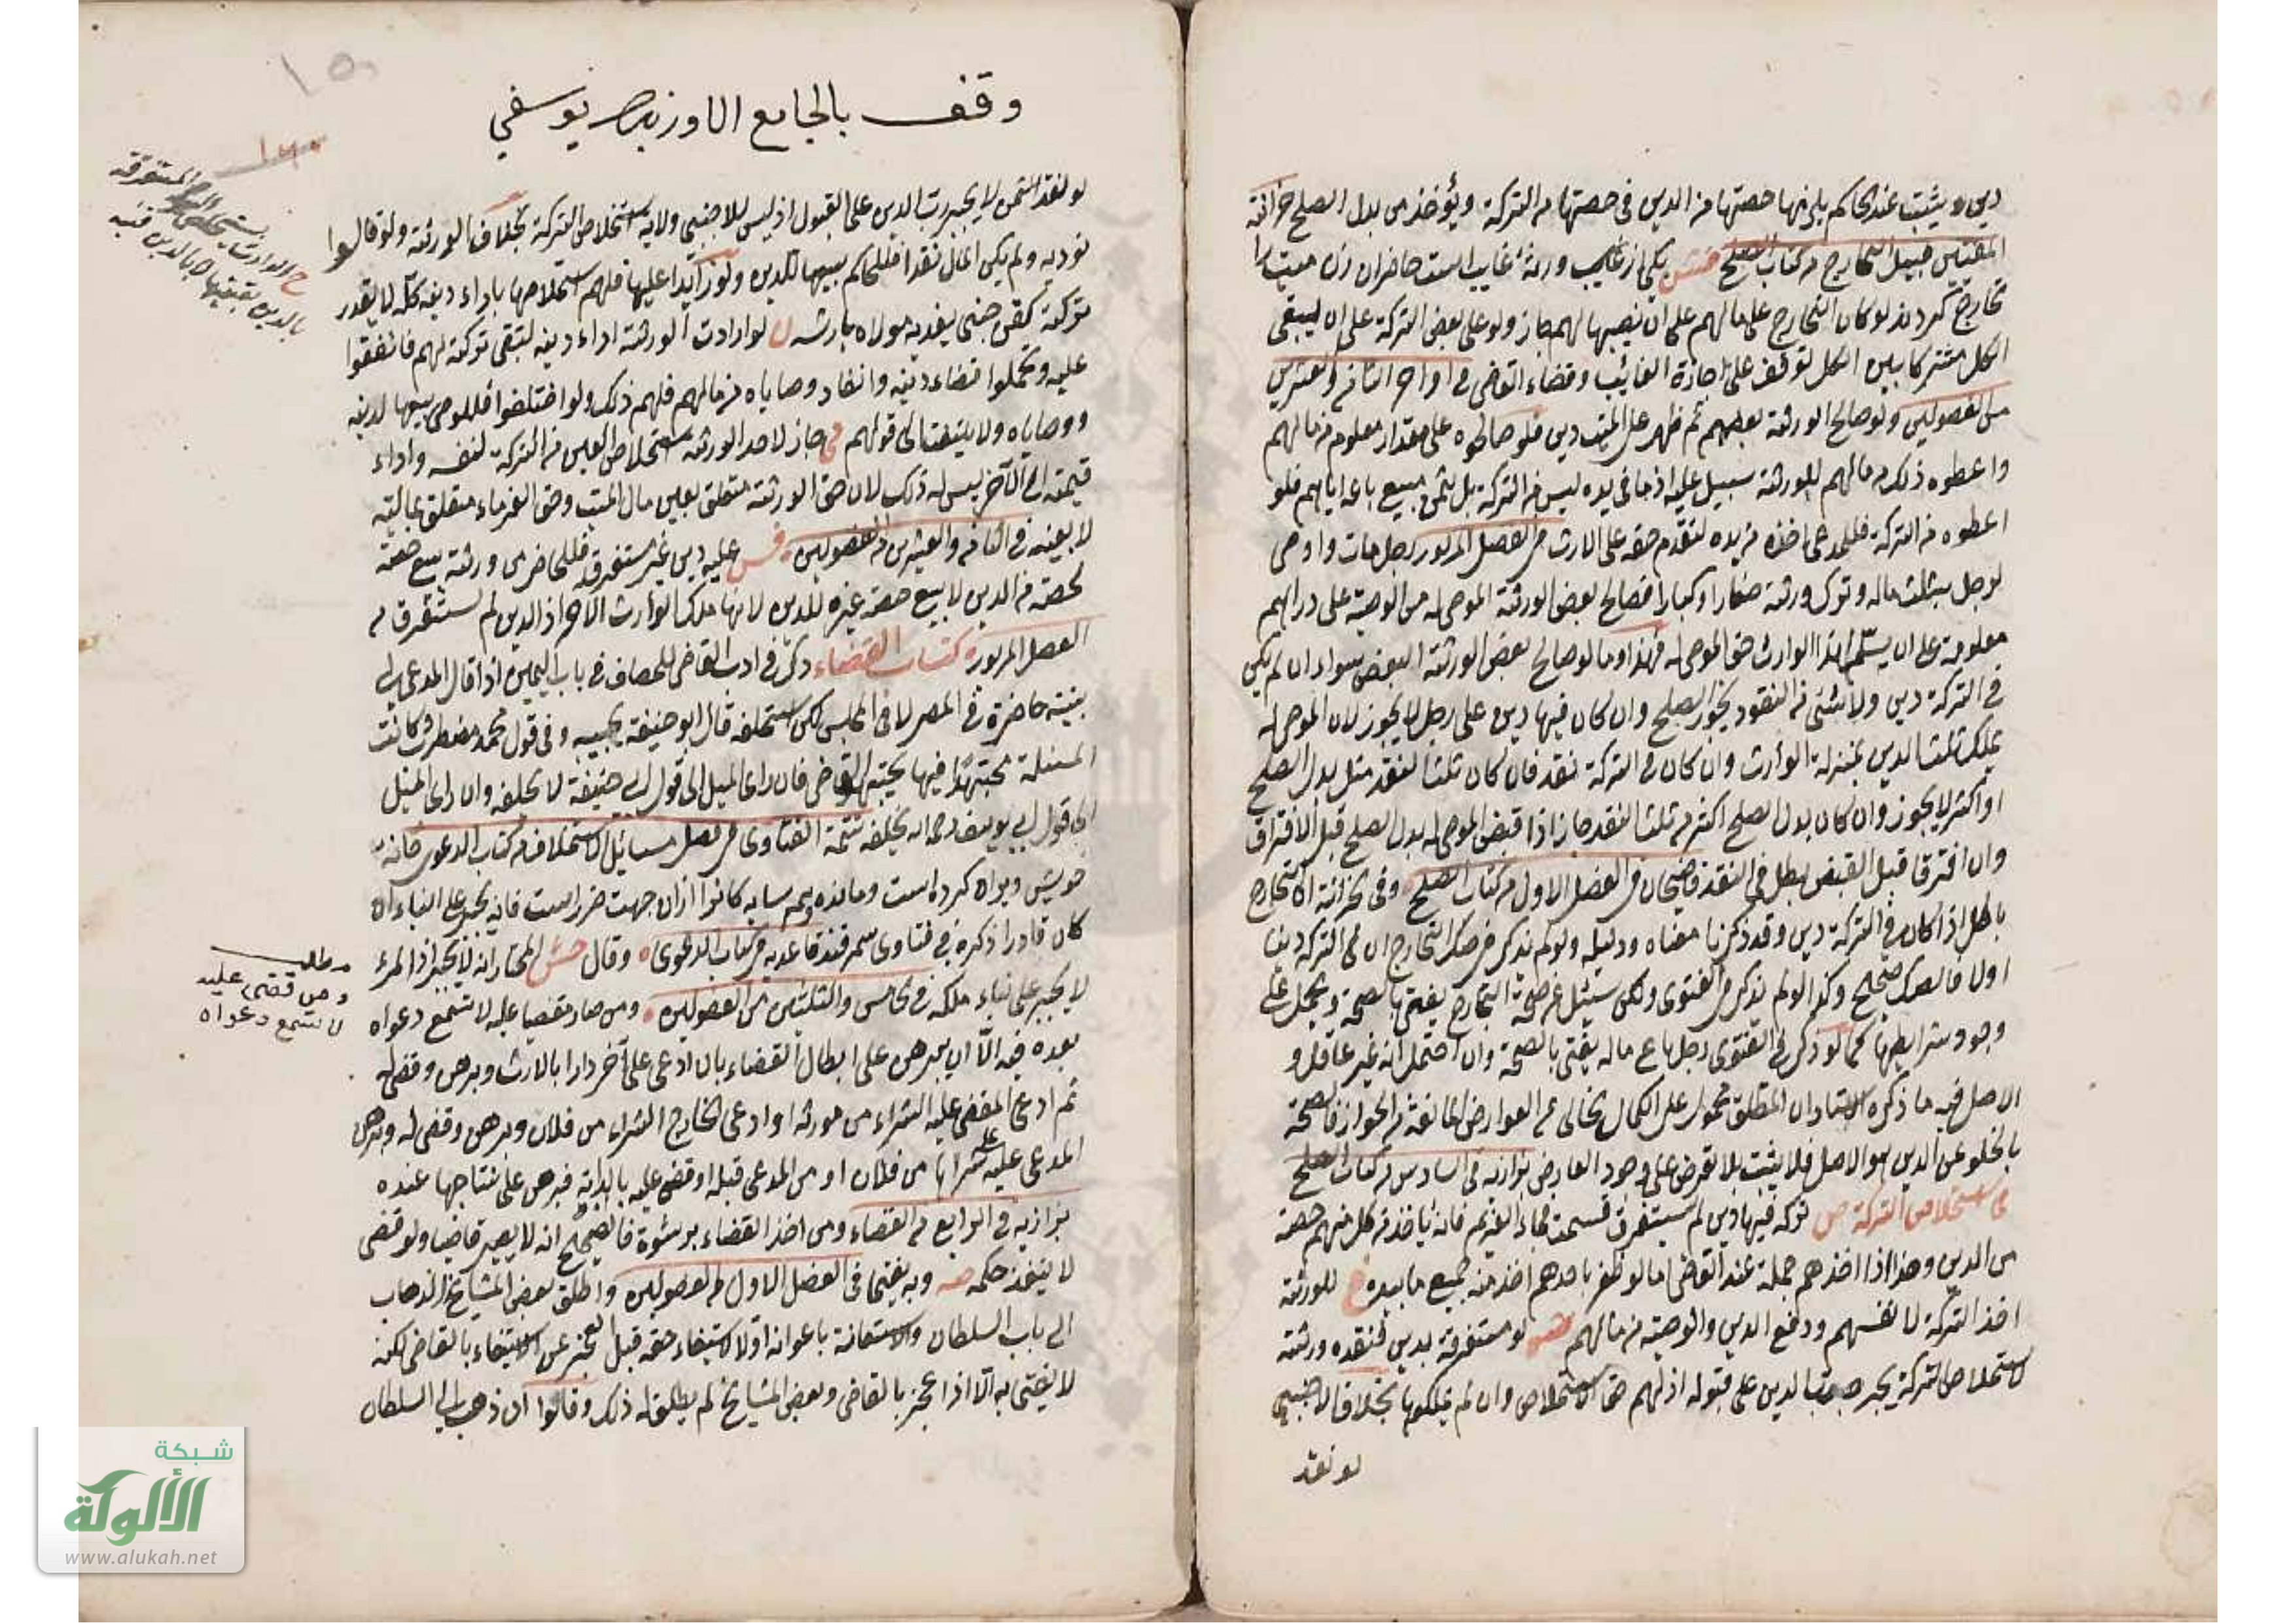 دين ويثبت عند الحاكم يلزمها حصتها من الدين في حصتها من التركة ويؤخذ من بدل الصلح خزانة
المفتين قبيل التخارج من كتاب الصلح فش يكي از ورثة غايب است حاضران زن ميت را
تخارج كردند لو كان التخارج على مالهم على ان نصيبها لهم جاز ولو على بعض التركة على ان يبقى
الكل مشتركا بين الكل توقف على اجازة الغائب وقضاء القاضي في اواخر الثامن والعشرين
من الفصولين ولو صالح الورثة بعضهم ثم ظهر على الميت دين فلو صالحوه على مقدار معلوم من مالهم
واعطوه ذلك من مالهم للورثة سبيل عليه اذ ما في يده ليس من التركة بل ثمن مبيع باعه اياهم فلو
اعطوه من التركة فللمدعي اخذه من يده لتقدم حقه على الارث من الفصل المزبور رجل مات واوصى
لرجل بثلث ماله وترك ورثة صغارا وكبارا فصالح بعض الورثة الموصى له من الوصية على دراهم
معلومة على ان يسلم لهذا الوارث حق الموصى له فهذا وما لو صالح بعض الورثة البعض سواء ان لم يكن
في التركة دين ولا شئ من النقود يجوز الصلح وان كان فيها دين على رجل لا يجوز لان الموصى له
يملك ثلث الدين بمنزلة الوارث وان كان في التركة نقد فان كان ثلث النقد مثل بدل الصلح
او اكثر لا يجوز وان كان بدل الصلح اكثر من ثلث النقد جاز اذا قبض الموصى له بدل الصلح قبل الافتراق
وان افترقا قبل القبض يبطل في النقد قاضيخان في الفصل الاول من كتاب الصلح وفي خزانة التخارج
باطل اذا كان في التركة دين وقد ذكرنا معناه ودليله ولو لم يذكر في صك التخارج ان في التركة دينا
او لا فالصك صحيح وكذا لو لم يذكر في الفتوى ولكن سئل عن صحة التخارج يفتى بالصحة ويحمل على
وجود شرايطها كما لو ذكر في الفتوى رجل باع ماله يفتى بالصحة وان احتمل انه غير عاقل و
الاصل فيه ما ذكره الاستاد ان المطلق محمول على الكمال الخالي عن العوارض المانعة من الجواز فالصحة
بالخلو عن الدين هو الاصل فلا يثبت بلا تعرض على وجود العارض بزازية في السادس من كتاب الصلح
في استخلاص التركة ص تركة فيها دين لم يستغرق قسمت فجاء الغريم فانه يأخذ من كل منهم حصته
من الدين وهذا اذا اخذهم جملة عند القاضي اما لو ظفر باحدهم اخذ منه جميع ما بيده خ للورثة
اخذ التركة لانفسهم ودفع الدين والوصية من مالهم فش لو مستغرقة بدين فنقده ورثته
لاستخلاص التركة يجبر رب الدين على قبوله اذ لهم حق الاستخلاص وان لم يملكوها بخلاف الاجنبي
لو نقد
وقف بالجامع الاوزبك يوسفي
لو نقد الثمن لا يجبر رب الدين على القبول اذ ليس للاجنبي ولاية استخلاص التركة بخلاف الورثة ولو قالوا
نوديه ولم يكن المال نقدا فللحاكم بيعها للدين ولو زائدا عليها فلهم استخلاصها باداء دينه كله لا بقدر
تركته كقن جنى يفديه مولاه بارشه ولو ارادت الورثة اداء دينه لتبقى تركته لهم فاتفقوا
عليه وتحملوا قضاء دينه وانفاد وصاياه من مالهم فلهم ذلك ولو اختلفوا فللوصي بيعها لدينه
ووصاياه ولا يلتفت الى قولهم في جاز لاحد الورثة استخلاص العين من التركة لنفسه واداء
قيمته الى الآخر ليس له ذلك لان حق الورثة متعلق بعين مال الميت وحق الغرماء متعلق بماليته
لا بعينه في الثامن والعشرين من الفصولين فش عليه دين غير مستغرق فللحاضر من ورثته بيع حصته
لحصته من الدين لا بيع حصة غيره للدين لانها ملك الوارث الآخر اذ الدين لم يستغرق من
الفصل المزبور كتاب القضاء ذكر في ادب القاضي للخصاف في باب اليمين اذا قال المدعي لي
بينة حاضرة في المصر لا في المجلس لكن استحلفه قال ابو حنيفة يجيبه وفي قول محمد مضطرب وكانت
المسئلة مجتهدا فيها يجتهد القاضي فان رأى الميل الى قول ابي حنيفة لا يحلفه وان رأى الميل
الى قول ابي يوسف رحمه الله يحلفه تتمة الفتاوى في فصل مسائل الاستحلاف من كتاب الدعوى خانه
خويش ويران كرده است ومانده وهمسايه كانرا ازان جهت ضرر است فانه يجبر على البناء ان
كان قادرا ذكره في فتاوى سمرقند قاعديه من كتاب الدعوى وقال حش المختار انه لا يجبر اذ المرء
لا يجبر على بناء ملكه في الخامس والثلثين من الفصولين ومن صار مقضيا عليه لا تسمع دعواه
بعده فيه الا ان يبرهن على ابطال القضاء بان ادعى على آخر دارا بالارث وبرهن وقضى له
ثم ادعى المقضي عليه الشراء من مورثه او ادعى الخارج الشراء من فلان وبرهن وقضى له وبرهن
المدعى عليه على شرائها من فلان او من المدعي قبله او قضى عليه بالدابة فبرهن على نتاجها عنده
بزازية في الرابع من القضاء ومن اخذ القضاء برشوة فالصحيح انه لا يصير قاضيا ولو قضى
لا ينفذ حكمه صه وبه يفتى في الفصل الاول من الفصولين واطلق بعض المشايخ الذهاب
الى باب السلطان والاستعانة باعوانه اولا لاستيفاء حقه قبل العجز عن الاستيفاء بالقاضي لكنه
لا يفتى به الا اذا عجز بالقاضي وبعض المشايخ لم يطلق له ذلك وقالوا ان ذهب الى السلطان
مطلب
ومن قضى عليه
لا تسمع دعواه
شبكة
الألوكة
www.alukah.net